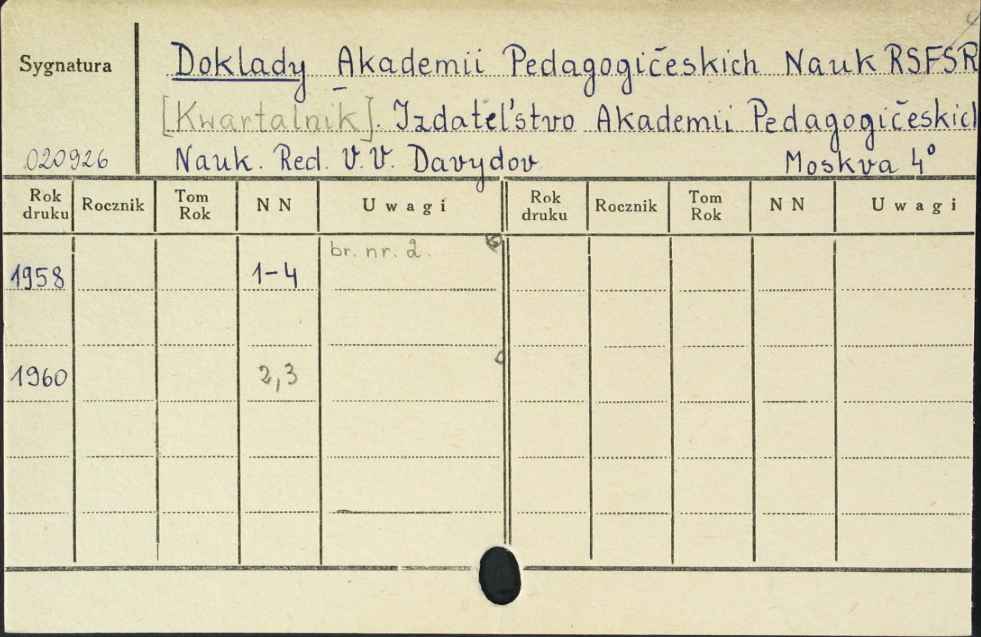 Sygnatura
Doklady Akademii Pedagogičeskich Nauk RSFSR
[Kwartalnik]. Izdatel'stvo Akademii Pedagogičeskich
020926
Nauk. Red. V.V. Davydov
Moskva 4°
Rok druku Rocznik Tom Rok N N Uwagi Rok druku Rocznik Tom Rok N N Uwagi
br. nr. 2.
1958 1-4
1960 2,3